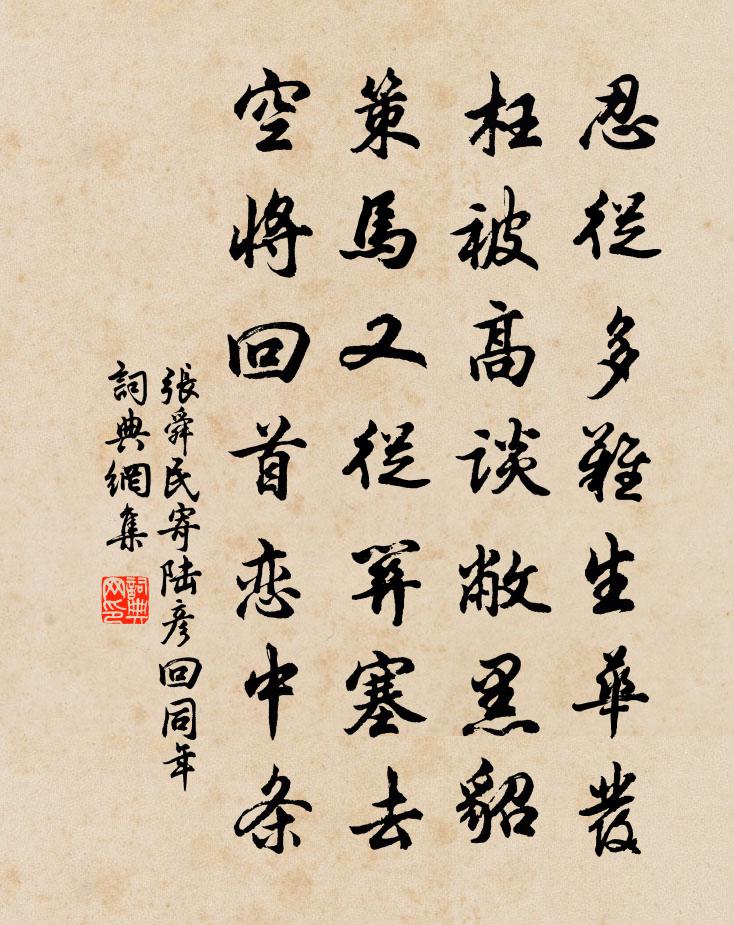 忍從多難生華發
枉被高談敝黑貂
策馬又從笄塞去
空將回首恋中条
張舜民寄陸彦回同年
詞典網集
詞典网印